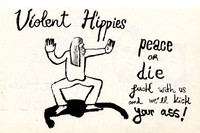 Violent Hippies
peace
OR
die
fuck with us
and we'll kick
your ass!